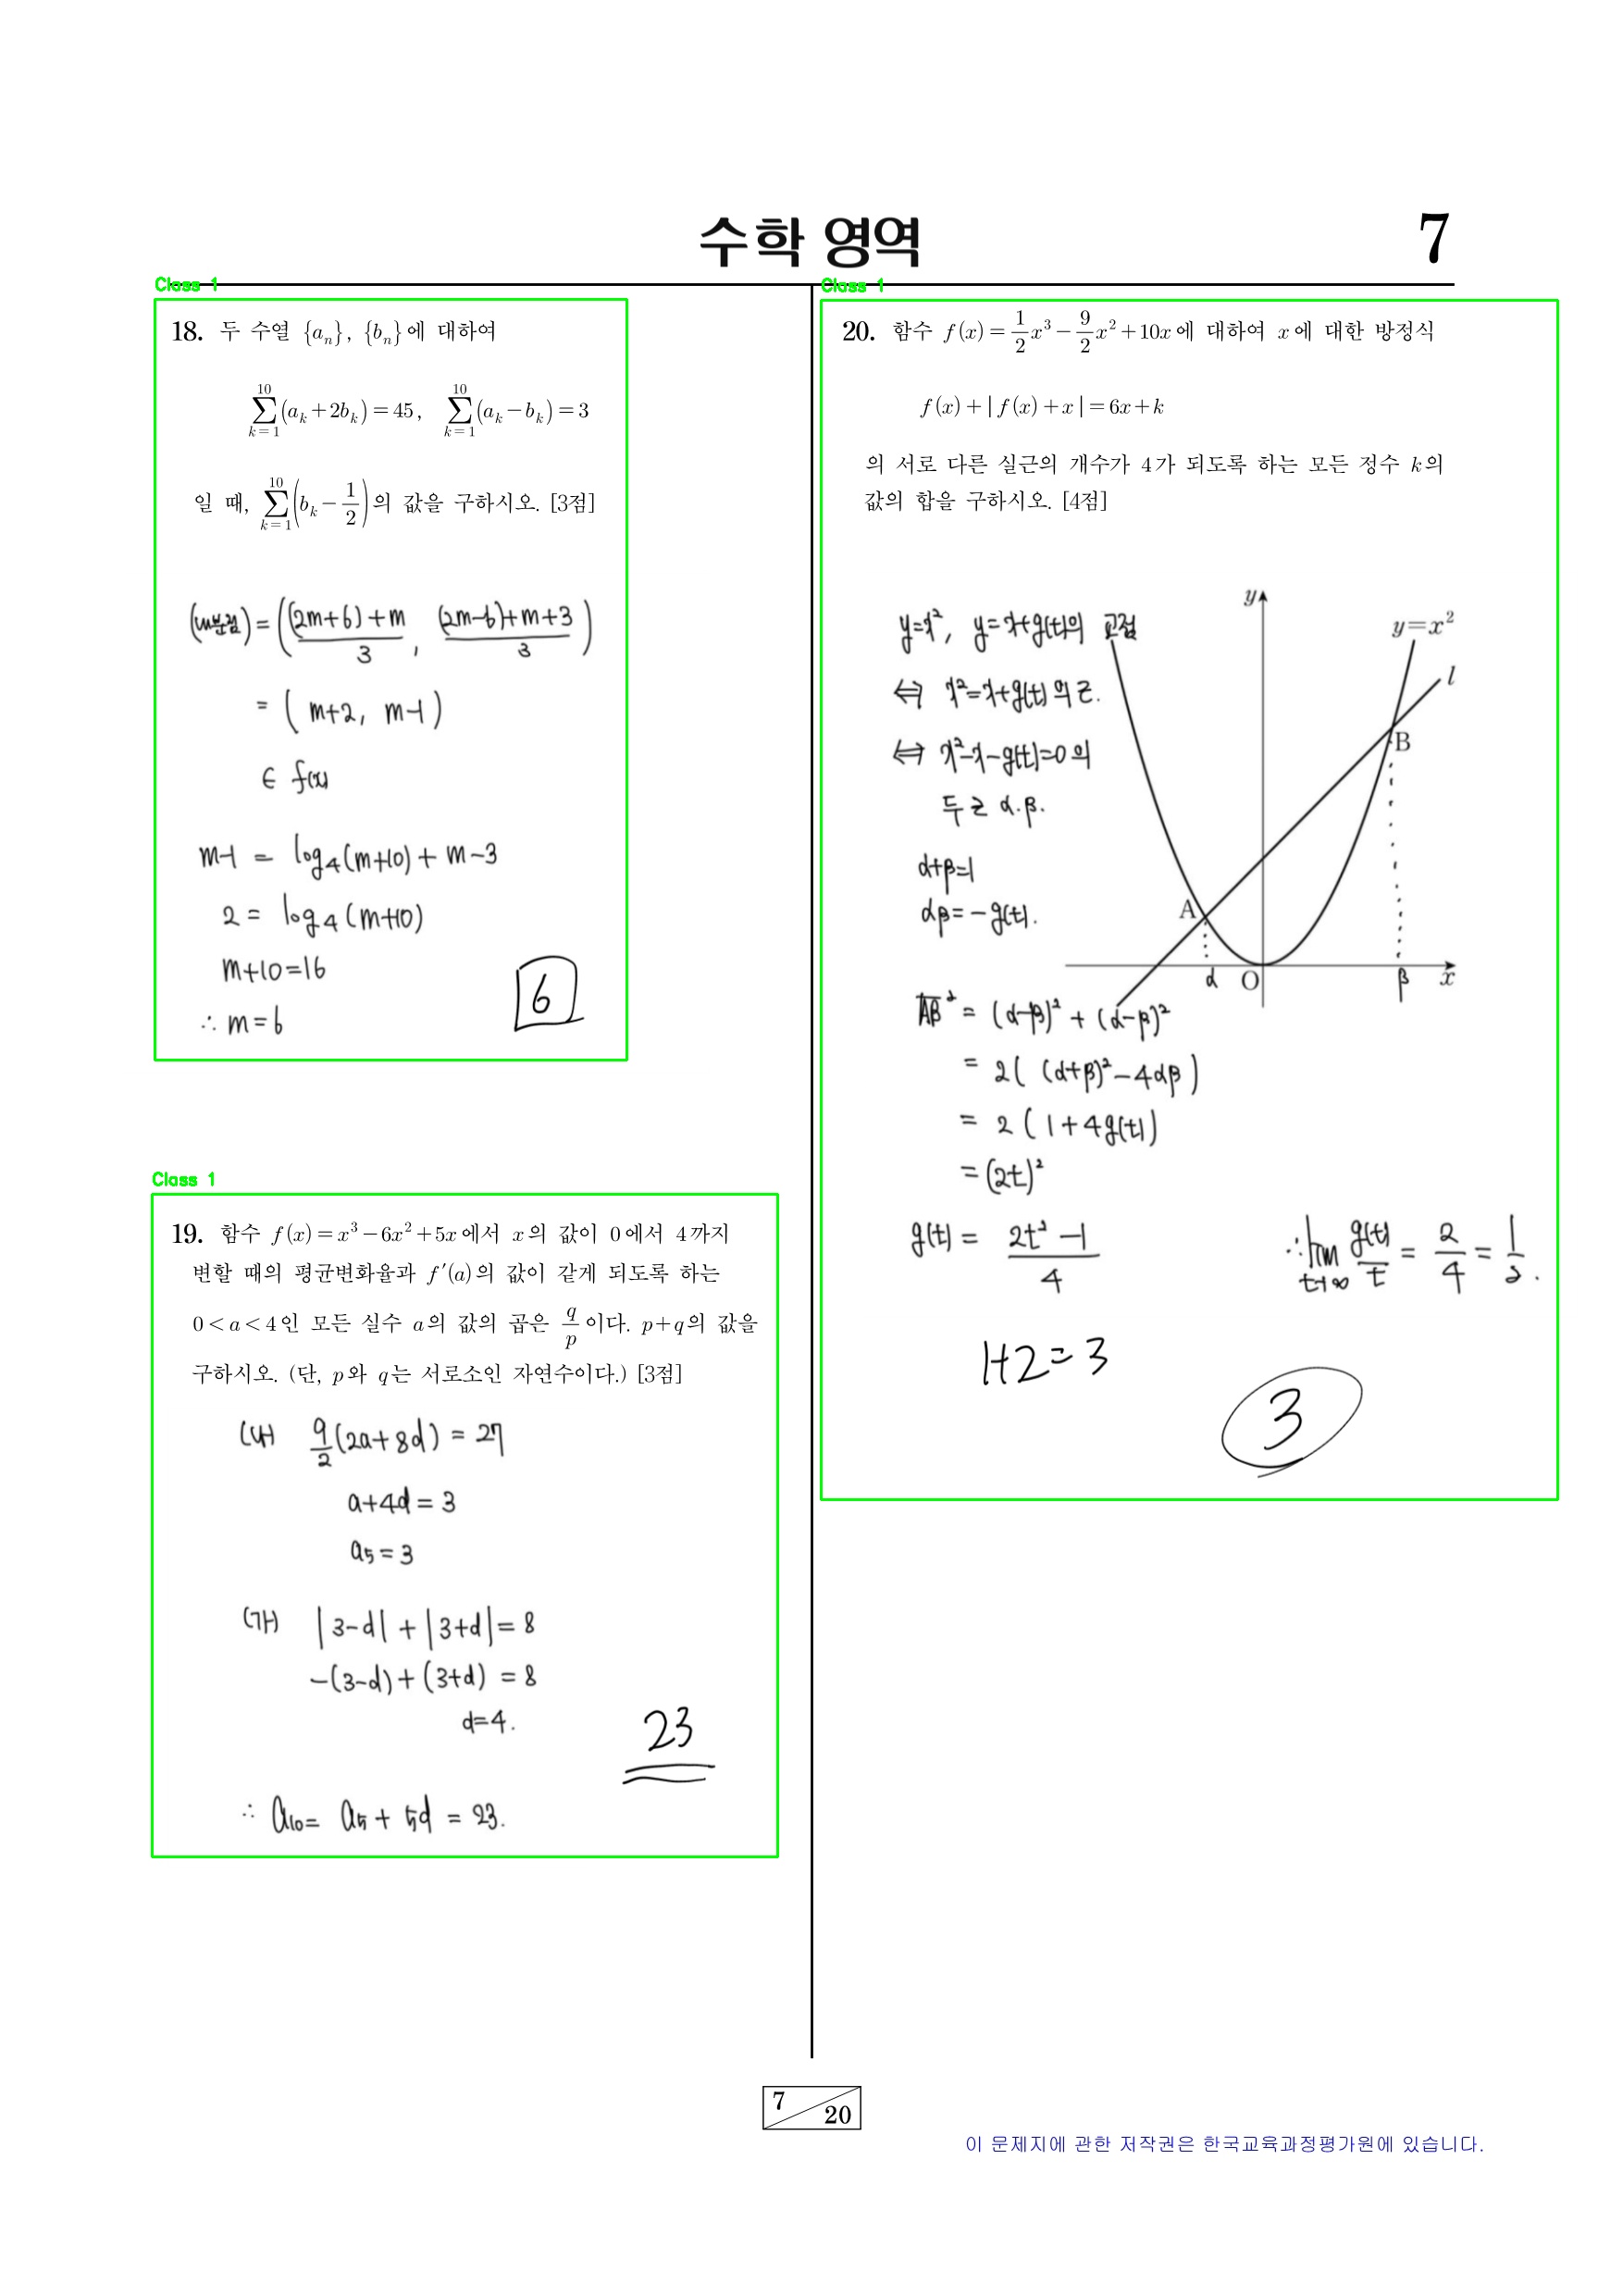 수학 영역
7
Class 1
18. 두 수열 {aₙ}, {bₙ}에 대하여
∑_{k=1}^{10}(a_k+2b_k)=45, ∑_{k=1}^{10}(a_k-b_k)=3
일 때, ∑_{k=1}^{10}(b_k-1/2)의 값을 구하시오. [3점]
(내분점) = ((2m+6)+m/3, (2m-6)+m+3/3)
= (m+2, m-1)
∈ f(x)
m-1 = log₄(m+10)+m-3
2 = log₄(m+10)
m+10=16
∴ m=6
6
Class 1
19. 함수 f(x)=x³-6x²+5x에서 x의 값이 0에서 4까지
변할 때의 평균변화율과 f′(a)의 값이 같게 되도록 하는
0<a<4인 모든 실수 a의 값의 곱은 q/p이다. p+q의 값을
구하시오. (단, p와 q는 서로소인 자연수이다.) [3점]
(나) 9/2(2a+8d)=27
a+4d=3
a₅=3
(가) |3-d|+|3+d|=8
-(3-d)+(3+d)=8
d=4.
23
∴ a₁₀= a₅+5d=23.
Class 1
20. 함수 f(x)=1/2x³-9/2x²+10x에 대하여 x에 대한 방정식
f(x)+|f(x)+x|=6x+k
의 서로 다른 실근의 개수가 4가 되도록 하는 모든 정수 k의
값의 합을 구하시오. [4점]
y=x², y=x+g(t)의 교점
⇔ x²=x+g(t)의 근.
⇔ x²-x-g(t)=0의
두 근 α.β.
α+β=1
αβ=-g(t).
y
y=x²
l
B
A
α
O
β
x
AB² = (α-β)²+(α-β)²
= 2((α+β)²-4αβ)
= 2(1+4g(t))
= (2t)²
g(t) = 2t²-1/4
∴ lim_{t→∞} g(t)/t = 2/4 = 1/2.
1+2=3
3
7
20
이 문제지에 관한 저작권은 한국교육과정평가원에 있습니다.